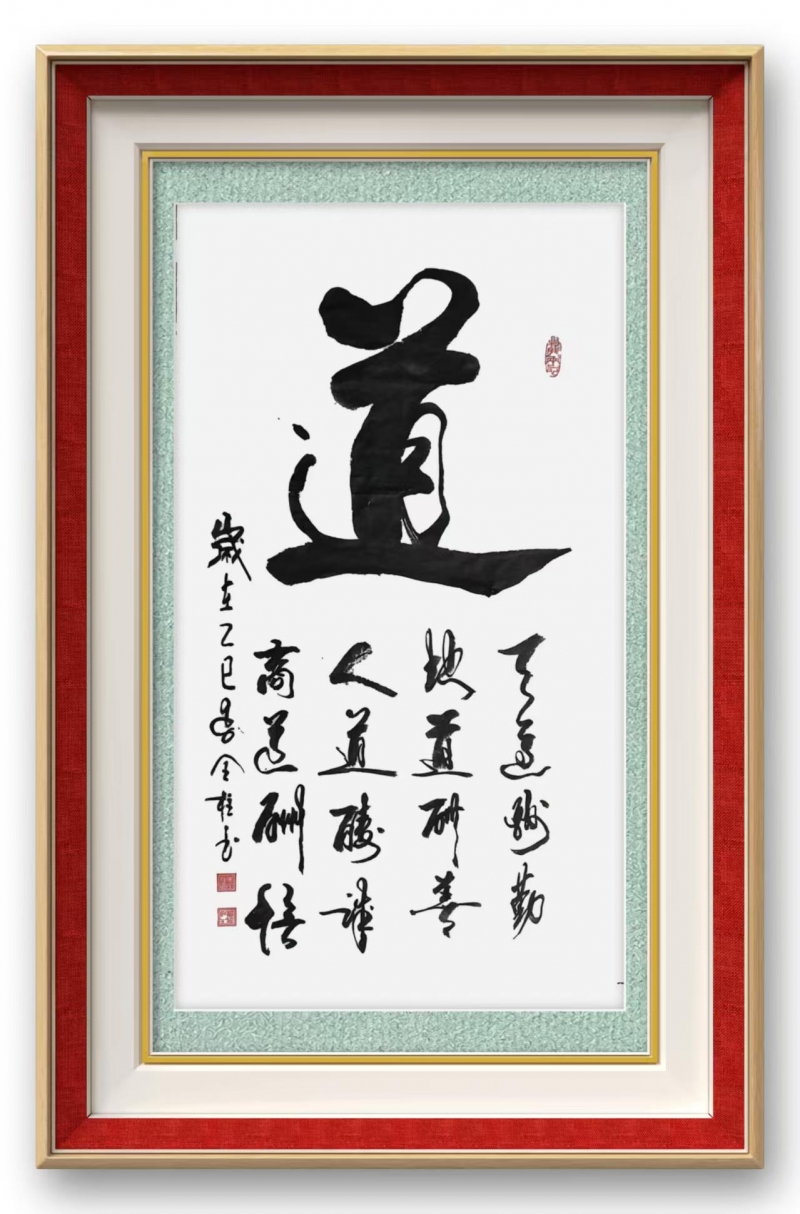 道
天道酬勤
地道酬善
人道酬诚
商道酬信
歲在乙巳金柱书